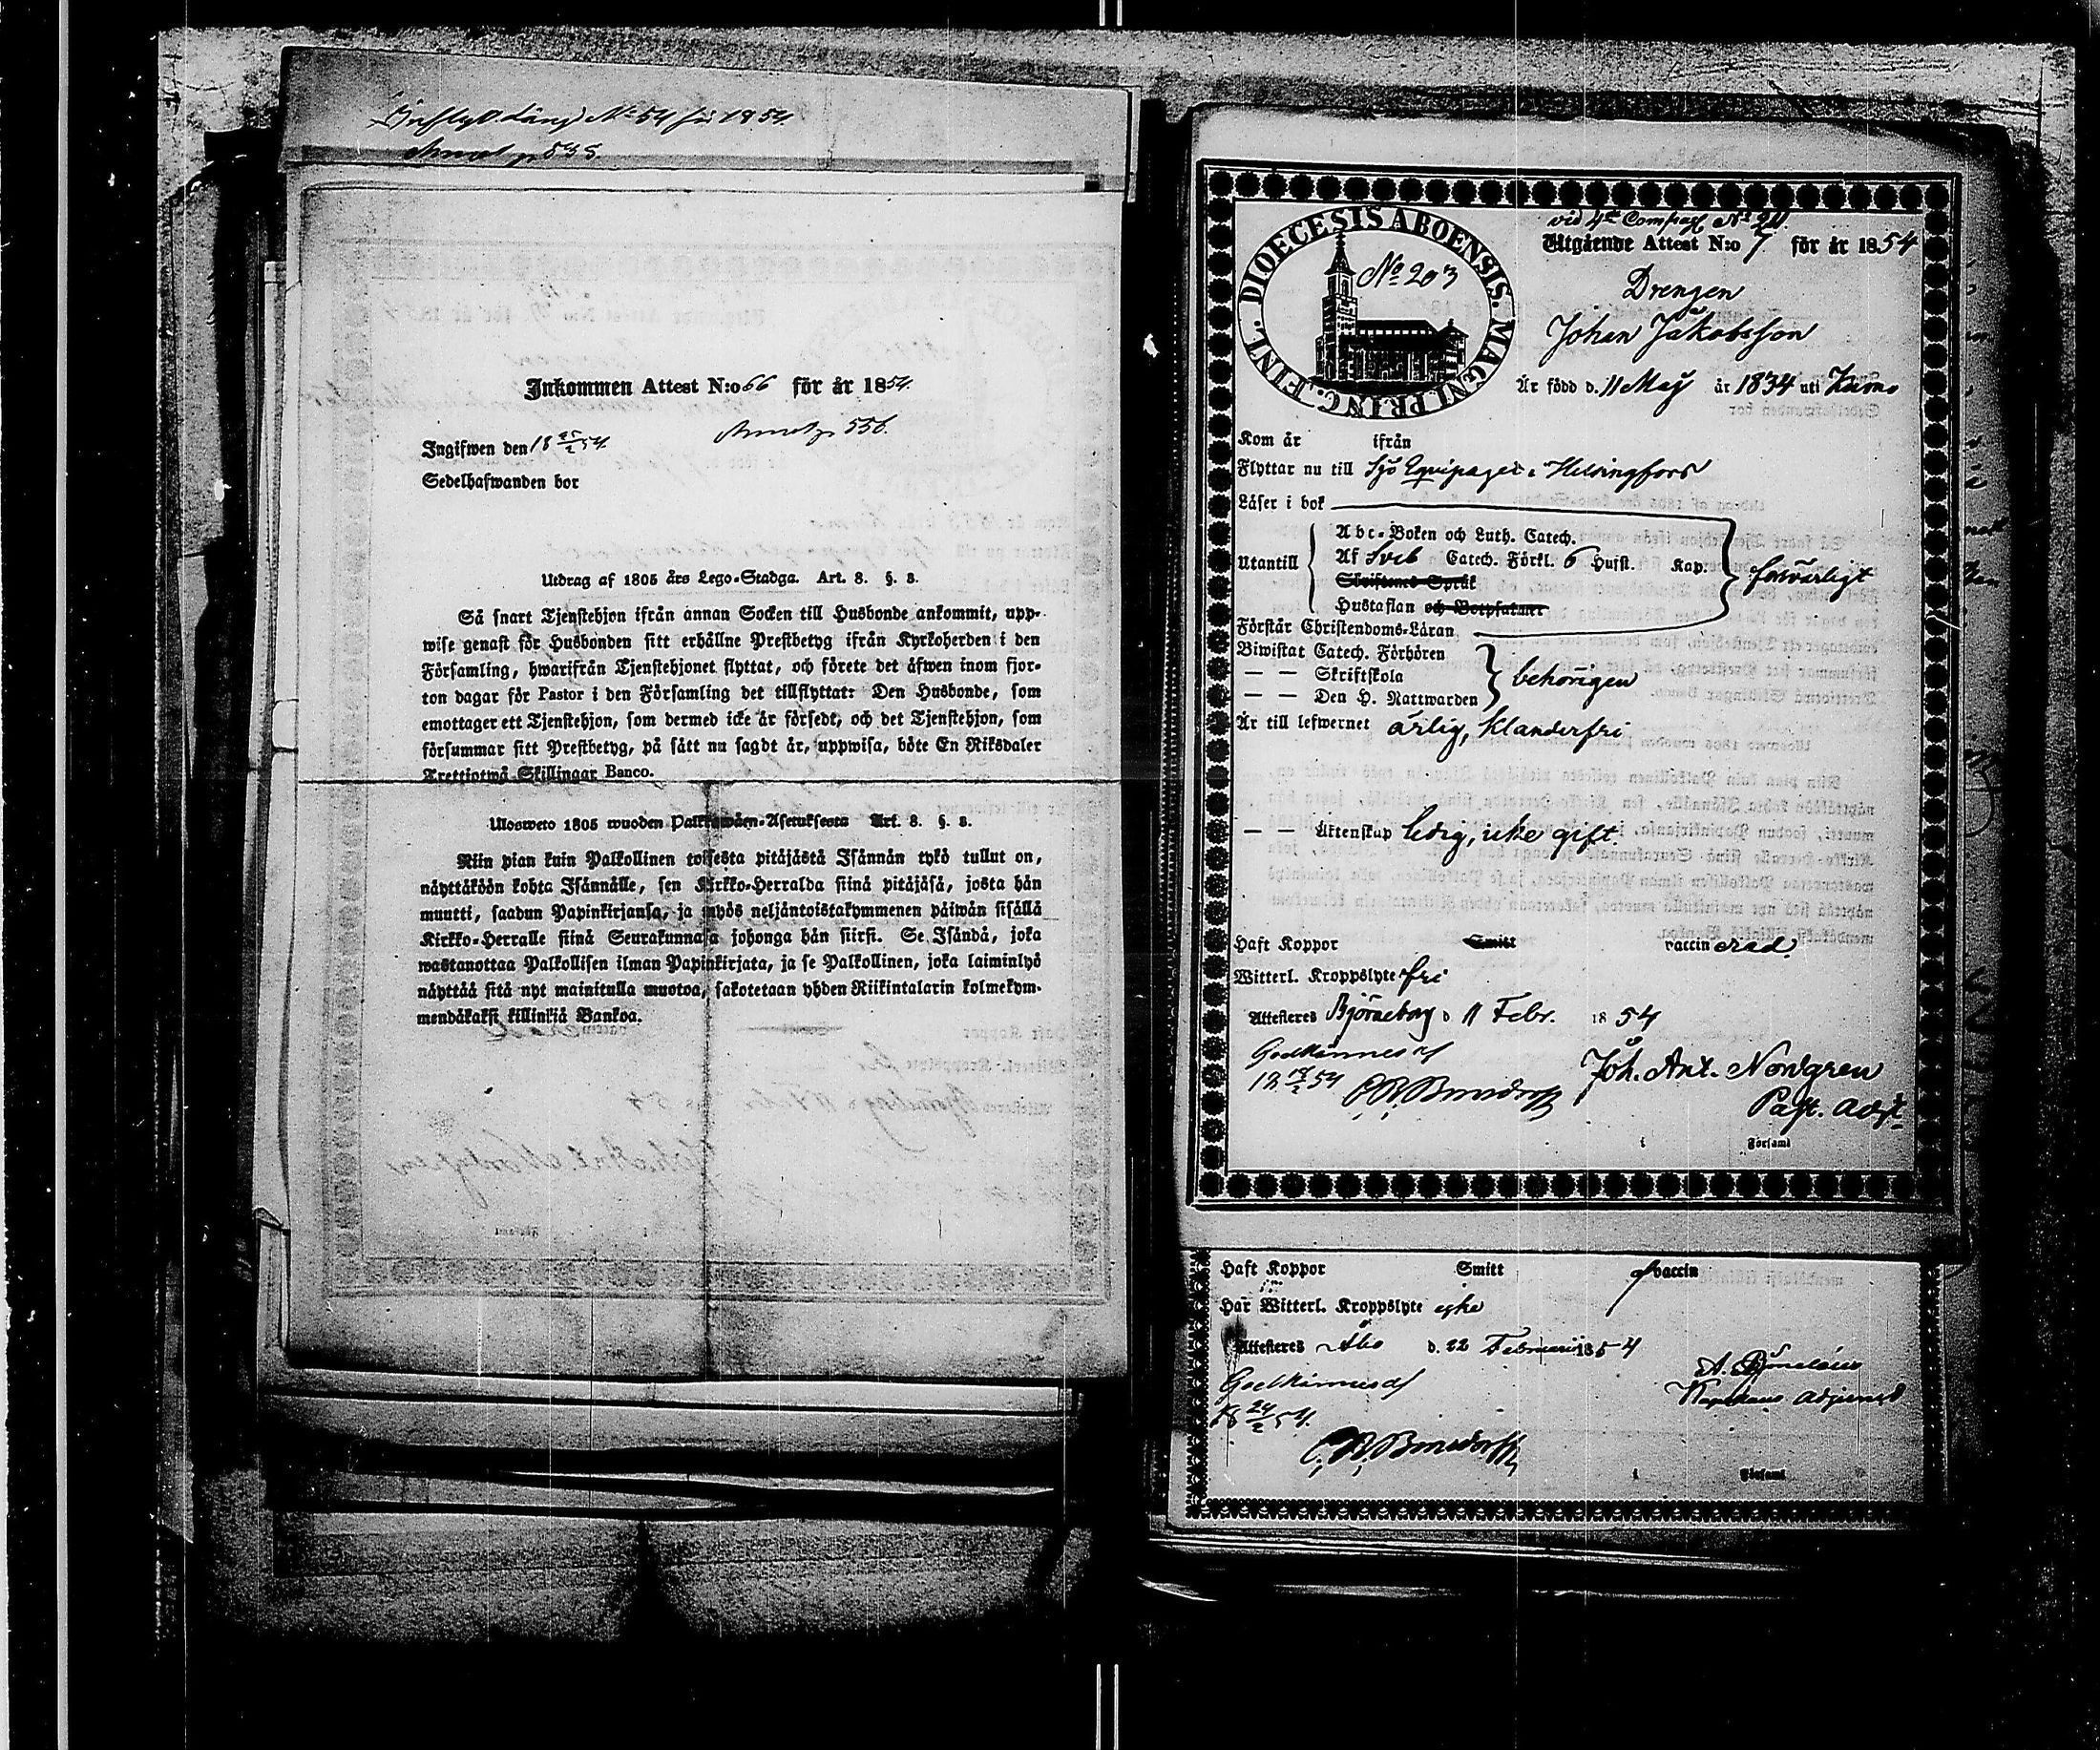 Inflytt.läng N:o 54 för 1854.
p 535.
Inkommen Attest N:o 66 för år 1854.
p 556.
Ingifwen den 18 25/2 54.
Sedelhafwanden bor
Utdrag af 1805 års Lego-Stadga. Art. 8. §. 8.
Så snart Tjenstehjon ifrån annan Socken till Husbonde ankommit, upp-
wise genast för Husbonden sitt erhållne Prestbetyg ifrån Kyrkoherden i den
Församling, hwarifrån Tjenstehjonet flyttat, och förete det äfwen inom fjor-
ton dagar för Pastor i den Församling det tillflyttat: Den Husbonde, som
emottager ett Tjenstehjon, som dermed icke är försedt, och det Tjenstehjon, som
försummar sitt Prestbetyg, på sätt nu sagdt är, uppwisa, böte En Riksdaler
Trettiotwå Skillingar Banco.
Ulosweto 1805 wuoden Palkkawäen-Asetuksesta Art. 8. §. 8.
Niin pian kuin Palkollinen toisesta pitäjästä Isännän tykö tullut on,
näyttäköön kohta Isännälle, sen Kirkko-Herralda siinä pitäjäsä, josta hän
muutti, saadun Papinkirjansa, ja myös neljäntoistakymmenen päiwän sisällä
Kirkko-Herralle siinä Seurakunnasa johonga hän siirsi. Se Isändä, joka
wastanottaa Palkollisen ilman Papinkirjata, ja se Palkollinen, joka laiminlyö
näyttää sitä nyt mainitulla muotoa, sakotetaan yhden Riikintalarin kolmekym-
mendäkaksi killinkiä Bankoa.
vid 4de Compagt N:o 24.
DIOECESIS ABOENSIS. MAGNI PRINC. FINL.
No 203
Utgående Attest N:o 7 för år 1854
Drengen
Johan Jakobsson
Är född d. 11 Maij år 1834 uti Kumo
Kom år ifrån
Flyttar nu till Sjö Equipaget i Helsingfors
Läser i bok
Utantill
Abc-Boken och Luth. Catech.
Af Sveb Catech. Förkl. 6 Hufst. Kap.
försvarligt
Skriftenes Språk
Hustaflan och Botpsalmer
Förstår Christendoms-Läran
Biwistat Catech. Förhören
— — Skriftskola
behörigen
— — Den H. Nattwarden
Är till lefwernet ärlig, klanderfri
— — Äktenskap ledig, icke gift.
Haft Koppor Smitt vaccinerad.
Witterl. Kroppslyte fri
Attesteres Björneborg d 11 Febr. 1854
Godkännes af
18 17/2 54
Joh. Ant. Nordgren
Past. Adj.
i Församl
Haft Koppor Smitt af vaccin
Har Witterl. Kroppslyte ejke
Attesteres Åbo d. 22 Februari 1854
Godkännes af
18 24/2 54.
adjunct
i Församl